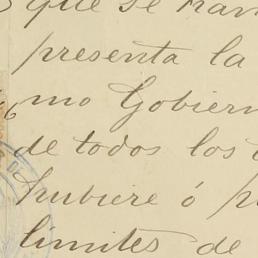 que se
presenta la
mo Gobiern
de todos los
hubiere ó p
límites de